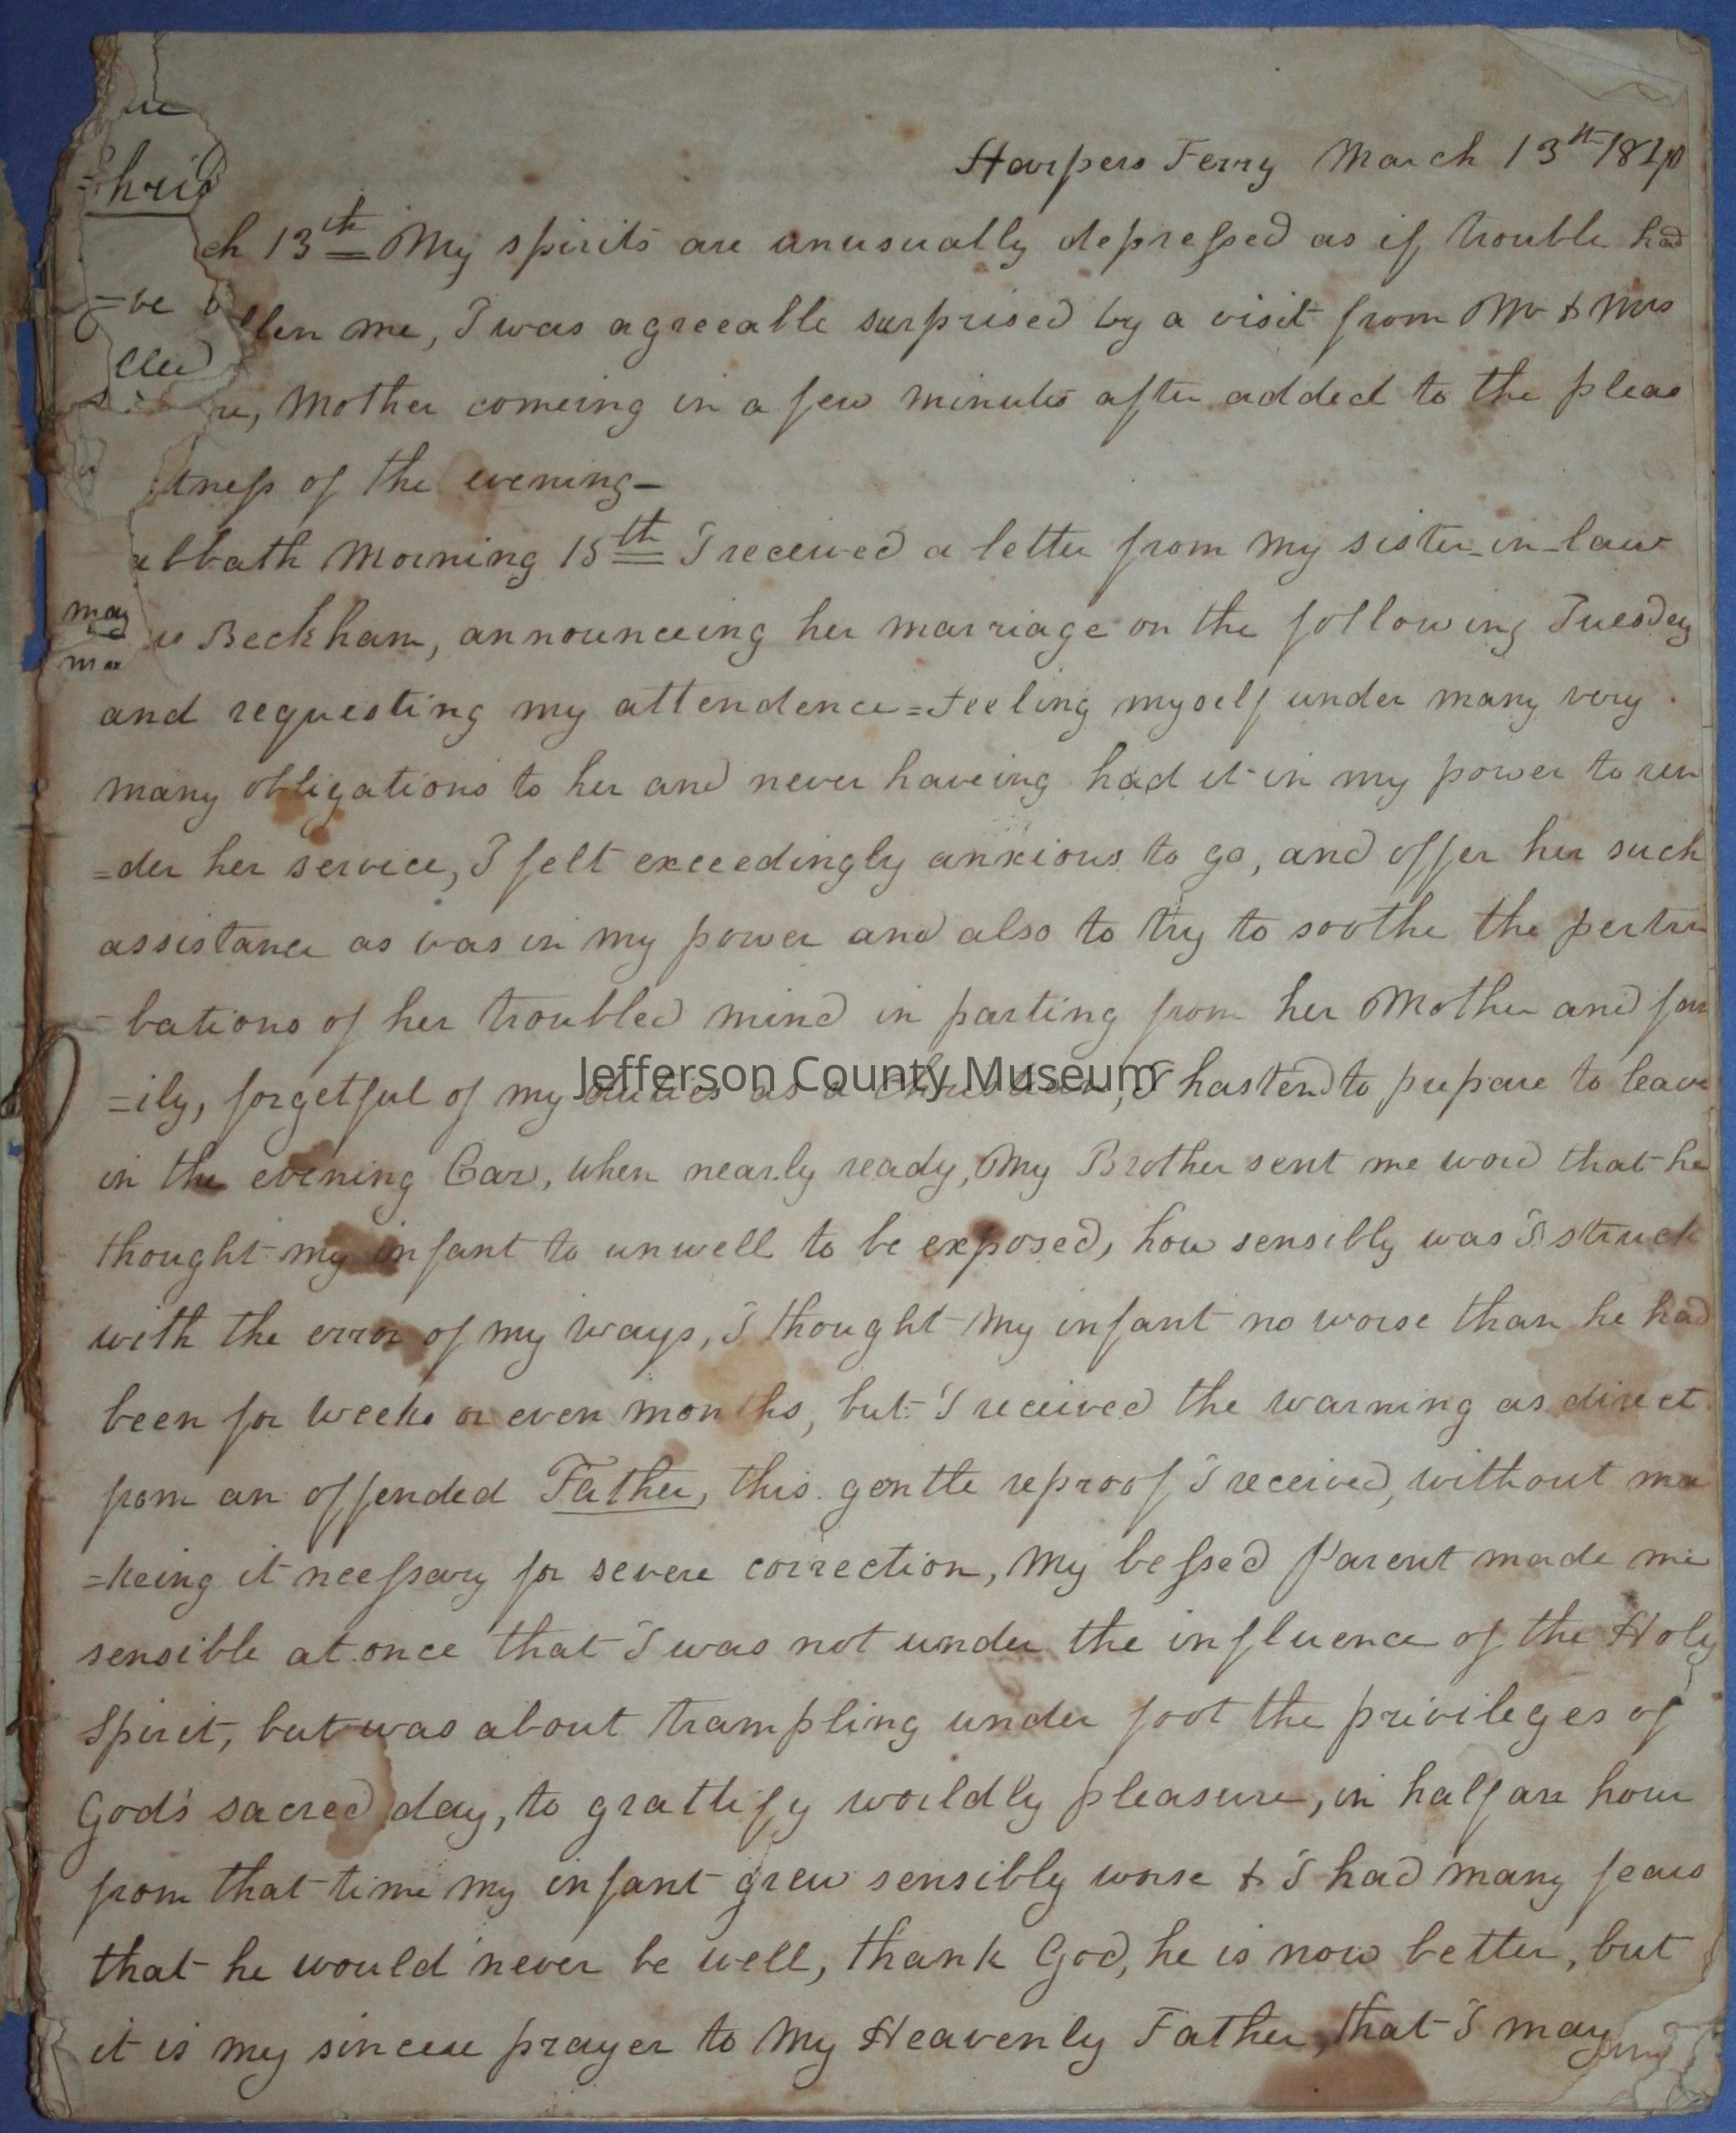 Harpers Ferry March 13th 1840
ch 13th My spirits are unusually depressed as if trouble had
llen me, I was agreeable surprised by a visit from Mr & Mrs
re, Mother comeing in a few minutes after added to the pleas
tness of the evening-
abbath Morning 15th I received a letter from my sister-in-law
Beckham, announceing her marriage on the following Tuesday
may
and requesting my attendence = Feeling myself under many very
many obligations to her and never haveing had it in my power to ren
=der her service, I felt exceedingly anxious to go, and offer her such
assistance as was in my power and also to try to soothe the pertur
-bations of her troubled mind in parting from her Mother and fam
=ily, forgetful of my duties as a christian, I hastend to prepare to leave
Jefferson County Museum
in the evening Cars, when nearly ready, My Brother sent me word that he
thought my infant to unwell to be exposed, how sensibly was I struck
with the error of my ways, I thought my infant no worse than he had
been for weeks or even months, but I received the warning as direct
from an offended Father, this gentle reproof I received, without ma
=keing it neessary for severe correction, My bessed Parent made me
sensible at once that I was not under the influence of the Holy
Spirit, but was about trampling under foot the privileges of
God's sacred day, to grattify worldly pleasure, in half an hour
from that time my infant grew sensibly worse & I had many fears
that he would never be well, thank God, he is now better, but
it is my sincere prayer to My Heavenly Father, that I may